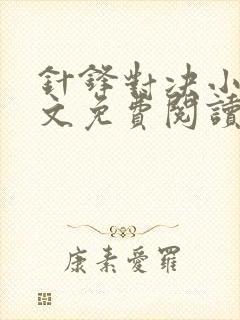 針鋒對決小
文免費閱讀
康素愛羅